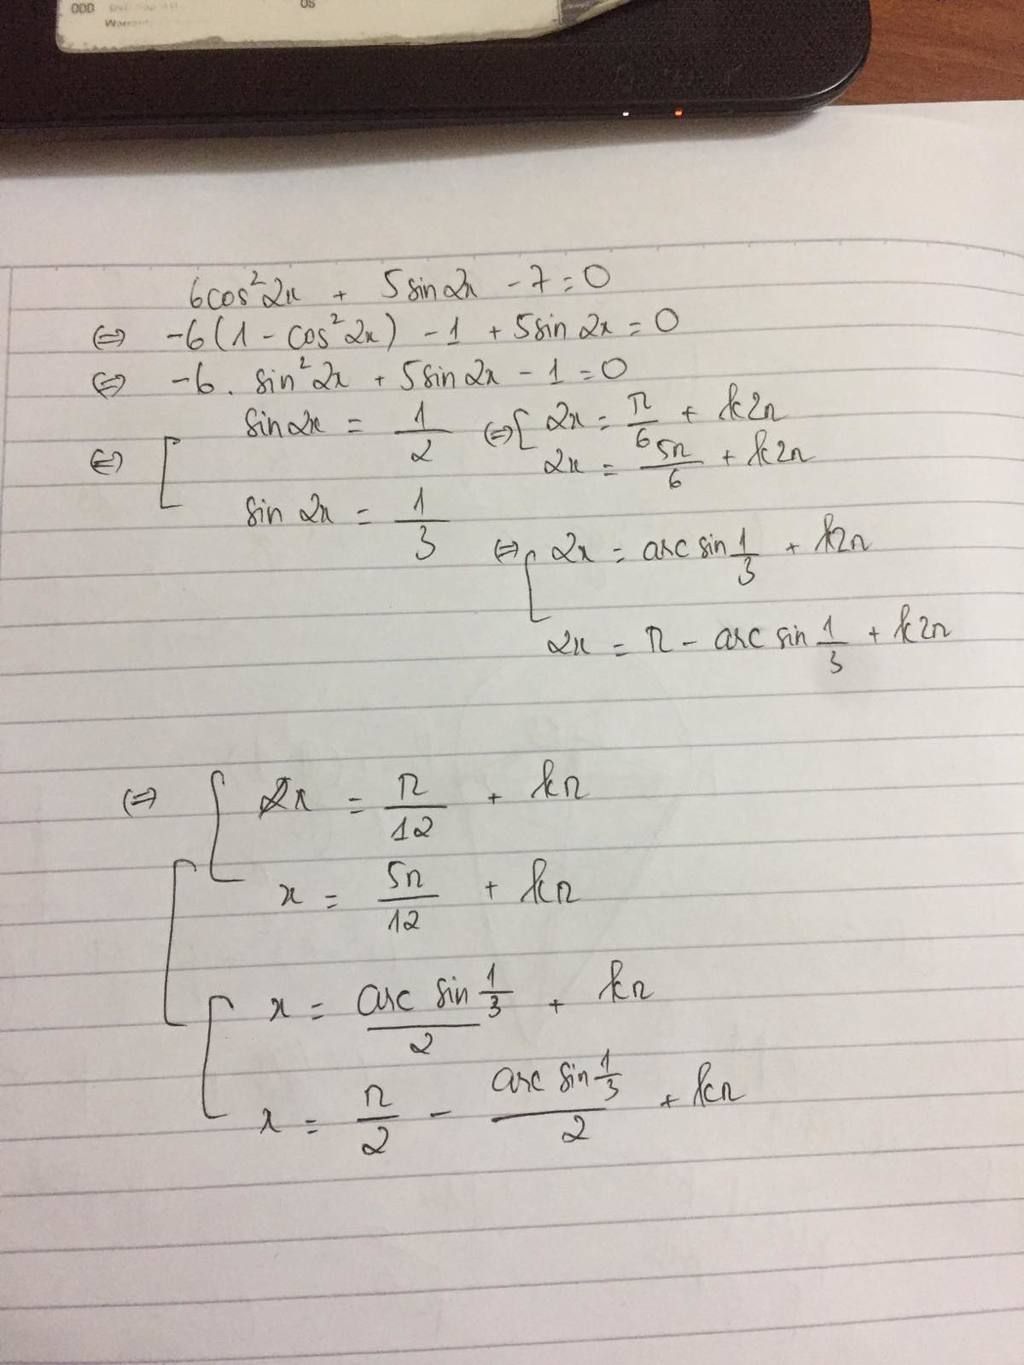 ODD
OS
6cos²2x + 5sin2x - 7 = 0
⇔ -6(1 - cos²2x) - 1 + 5sin 2x = 0
⇔ -6. sin²2x + 5sin 2x - 1 = 0
⇔ [ sin2x = 1/2 ⇔ [ 2x = π/6 + k2π
2x = 5π/6 + k2π
sin 2x = 1/3 ⇔ [ 2x = arc sin 1/3 + k2π
2x = π - arc sin 1/3 + k2π
⇔ [ x = π/12 + kπ
x = 5π/12 + kπ
[ x = arc sin 1/3 / 2 + kπ
x = π/2 - arc sin 1/3 / 2 + kπ